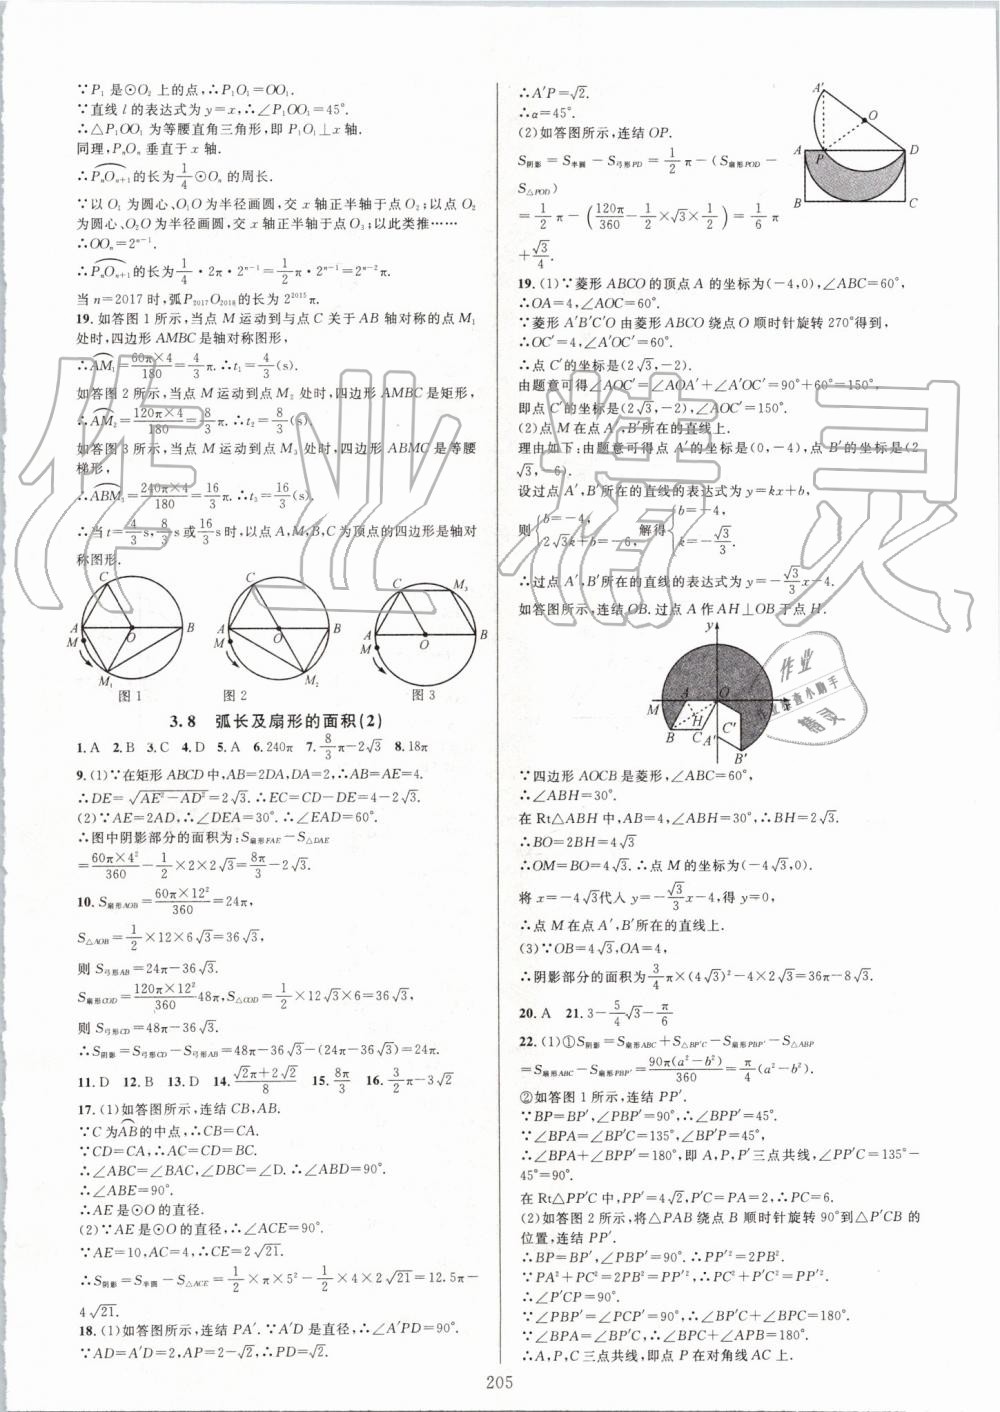 ∵P₁是⊙O₂上的点,∴P₁O₁=OO₁.
∵直线l的表达式为y=x,∴∠P₁OO₁=45°.
∴△P₁OO₁为等腰直角三角形,即P₁O₁⊥x轴.
同理,PₙOₙ垂直于x轴.
∴⌒PₙOₙ₊₁的长为1/4⊙Oₙ的周长.
∵以O₁为圆心,O₁O为半径画圆,交x轴正半轴于点O₂;以点O₂
为圆心,O₂O为半径画圆,交x轴正半轴于点O₃;以此类推……
∴OOₙ=2ⁿ⁻¹.
∴⌒PₙOₙ₊₁的长为1/4·2π·2ⁿ⁻¹=1/2π·2ⁿ⁻¹=2ⁿ⁻²π.
当n=2017时,弧P₂₀₁₇O₂₀₁₈的长为2²⁰¹⁵π.
19.如答图1所示,当点M运动到与点C关于AB轴对称的点M₁
处时,四边形AMBC是轴对称图形,
∴⌒AM₁=60π×4/180=4/3π.∴t₁=4/3(s).
如答图2所示,当点M运动到点M₂处时,四边形AMBC是矩形,
∴⌒AM₂=120π×4/180=8/3π.∴t₂=8/3(s).
如答图3所示,当点M运动到点M₃处时,四边形ABMC是等腰
梯形,
∴⌒ABM₃=240π×4/180=16/3π.∴t₃=16/3(s).
∴当t=4/3s,8/3s或16/3s时,以点A,M,B,C为顶点的四边形是轴对
称图形.
C A M O B M₁ C A M O B M₂ C M₃ A M O B
图1 图2 图3
3.8 弧长及扇形的面积(2)
1.A 2.B 3.C 4.D 5.A 6.240π 7.8/3π-2√3 8.18π
9.(1)∵在矩形ABCD中,AB=2DA,DA=2,∴AB=AE=4.
∴DE=√(AE²-AD²)=2√3.∴EC=CD-DE=4-2√3.
(2)∵AE=2AD,∴∠DEA=30°.∴∠EAD=60°.
∴图中阴影部分的面积为:S扇形FAE-S△DAE
=60π×4²/360-1/2×2×2√3=8π/3-2√3.
10.S扇形AOB=60π×12²/360=24π,
S△AOB=1/2×12×6√3=36√3,
则S弓形AB=24π-36√3.
S扇形COD=120π×12²/360 48π,S△COD=1/2×12√3×6=36√3,
则S弓形CD=48π-36√3.
∴S阴影=S弓形CD-S弓形AB=48π-36√3-(24π-36√3)=24π.
11.D 12.B 13.D 14.(√2π+2√2)/8 15.8π/3 16.3/2π-3√2
17.(1)如答图所示,连结CB,AB.
∵C为⌒AB的中点,∴∠CAB=∠CBA.
∵CD=CA,∴AC=CD=BC.
∴∠ABC=∠BAC,∠DBC=∠D.∴∠ABD=90°.
∴∠ABE=90°.
∴AE是⊙O的直径.
(2)∵AE是⊙O的直径,∴∠ACE=90°.
∵AE=10,AC=4,∴CE=2√21.
∴S阴影=S半圆-S△ACE=1/2×π×5²-1/2×4×2√21=12.5π-
4√21.
18.(1)如答图所示,连结PA′.∵A′D是直径,∴∠A′PD=90°.
∵AD=A′D=2,AP=2-√2,∴PD=√2.
∴A′P=√2.
∴α=45°.
(2)如答图所示,连结OP.
S阴影=S半圆-S弓形PD=1/2π-(S扇形POD-
S△POD)
=1/2π-(120π/360-1/2×√3×1/2)=1/6π
+√3/4.
A′ O A P D B C
19.(1)∵菱形ABCO的顶点A的坐标为(-4,0),∠ABC=60°,
∴OA=4,∠AOC=60°.
∵菱形A′B′C′O由菱形ABCO绕点O顺时针旋转270°得到,
∴OC′=4,∠A′OC′=60°.
∴点C′的坐标是(2√3,-2).
由题意可得∠AOC′=∠AOA′+∠A′OC′=90°+60°=150°,
即点C′的坐标是(2√3,-2),∠AOC′=150°.
(2)点M在点A′,B′所在的直线上.
理由如下:由题意可得点A′的坐标为(0,-4),点B′的坐标为(2
√3,-6).
设过点A′,B′所在的直线的表达式为y=kx+b,
则{b=-4, 2√3k+b=-6, 解得{b=-4, k=-√3/3.
∴过点A′,B′所在的直线的表达式为y=-√3/3x-4.
如答图所示,连结OB.过点A作AH⊥OB于点H.
y M A O x H B C A′ C′ B′
∵四边形AOCB是菱形,∠ABC=60°,
∴∠ABH=30°.
在Rt△ABH中,AB=4,∠ABH=30°,∴BH=2√3.
∴BO=2BH=4√3
∴OM=BO=4√3.∴点M的坐标为(-4√3,0).
将x=-4√3代人y=-√3/3x-4,得y=0,
∴点M在点A′,B′所在的直线上.
(3)∵OB=4√3,OA=4,
∴阴影部分的面积为3/4π×(4√3)²-4×2√3=36π-8√3.
20.A 21.3-5/4√3-π/6
22.(1)①S阴影=S扇形ABC+S△BP′C-S扇形PBP′-S△ABP
=S扇形ABC-S扇形PBP′=90π(a²-b²)/360=π/4(a²-b²).
②如答图1所示,连结PP′.
∵BP=BP′,∠PBP′=90°,∴∠BPP′=45°.
∵∠BPA=∠BP′C=135°,∠BP′P=45°,
∴∠BPA+∠BPP′=180°,即A,P,P′三点共线,∠PP′C=135°-
45°=90°.
在Rt△PP′C中,PP′=4√2,P′C=PA=2,∴PC=6.
(2)如答图2所示,将△PAB绕点B顺时针旋转90°到△P′CB的
位置,连结PP′.
∴BP=BP′,∠PBP′=90°.∴PP′²=2PB².
∵PA²+PC²=2PB²=PP′²,∴PC²+P′C²=PP′².
∴∠P′CP=90°.
∵∠PBP′=∠PCP′=90°,∴∠BP′C+∠BPC=180°.
∵∠BPA=∠BP′C,∴∠BPC+∠APB=180°.
∴A,P,C三点共线,即点P在对角线AC上.
205
作业精灵
作业
作业检查小助手
精灵